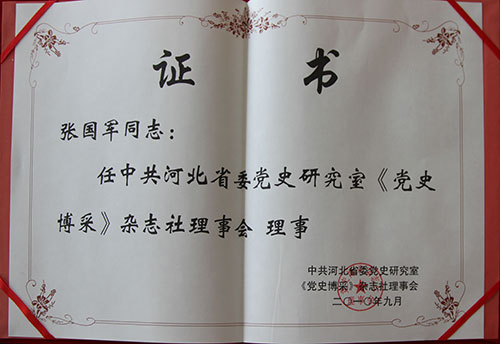 证书
张国军同志：
任中共河北省委党史研究室《党史
博采》杂志社理事会 理事
中共河北省委党史研究室
《党史博采》杂志社理事会
二〇一〇年九月